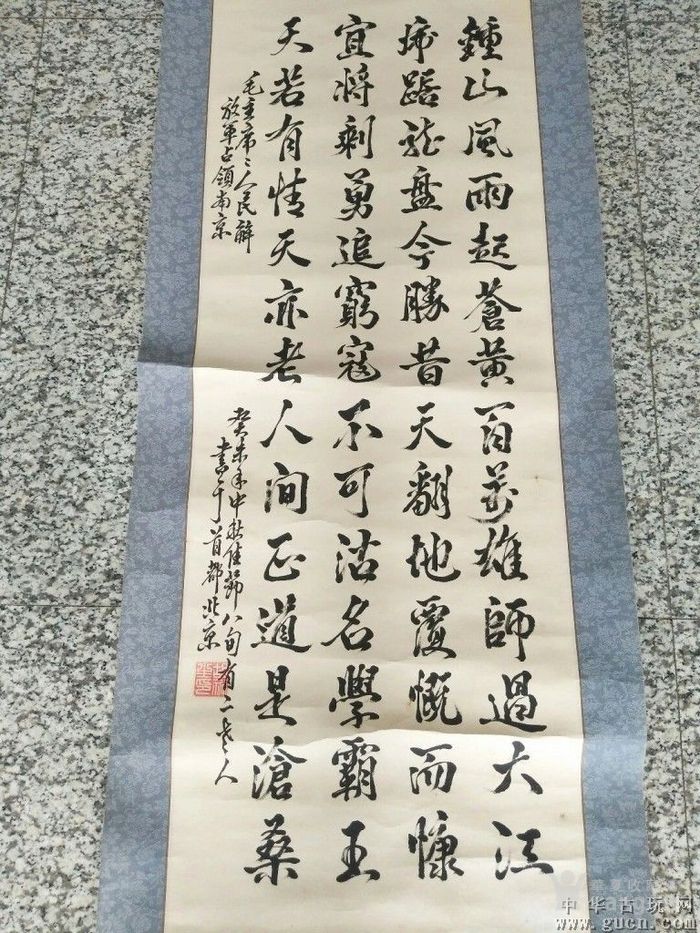 鍾山風雨起蒼黄百萬雄師過大江
虎踞龍盤今勝昔天翻地覆慨而慷
宜將剩勇追窮寇不可沽名學霸王
天若有情天亦老人間正道是滄桑
毛主席：人民解
放軍占領南京
癸未年中秋佳節八旬有二老人
書于首都北京
中华古玩网
www.gucn.com